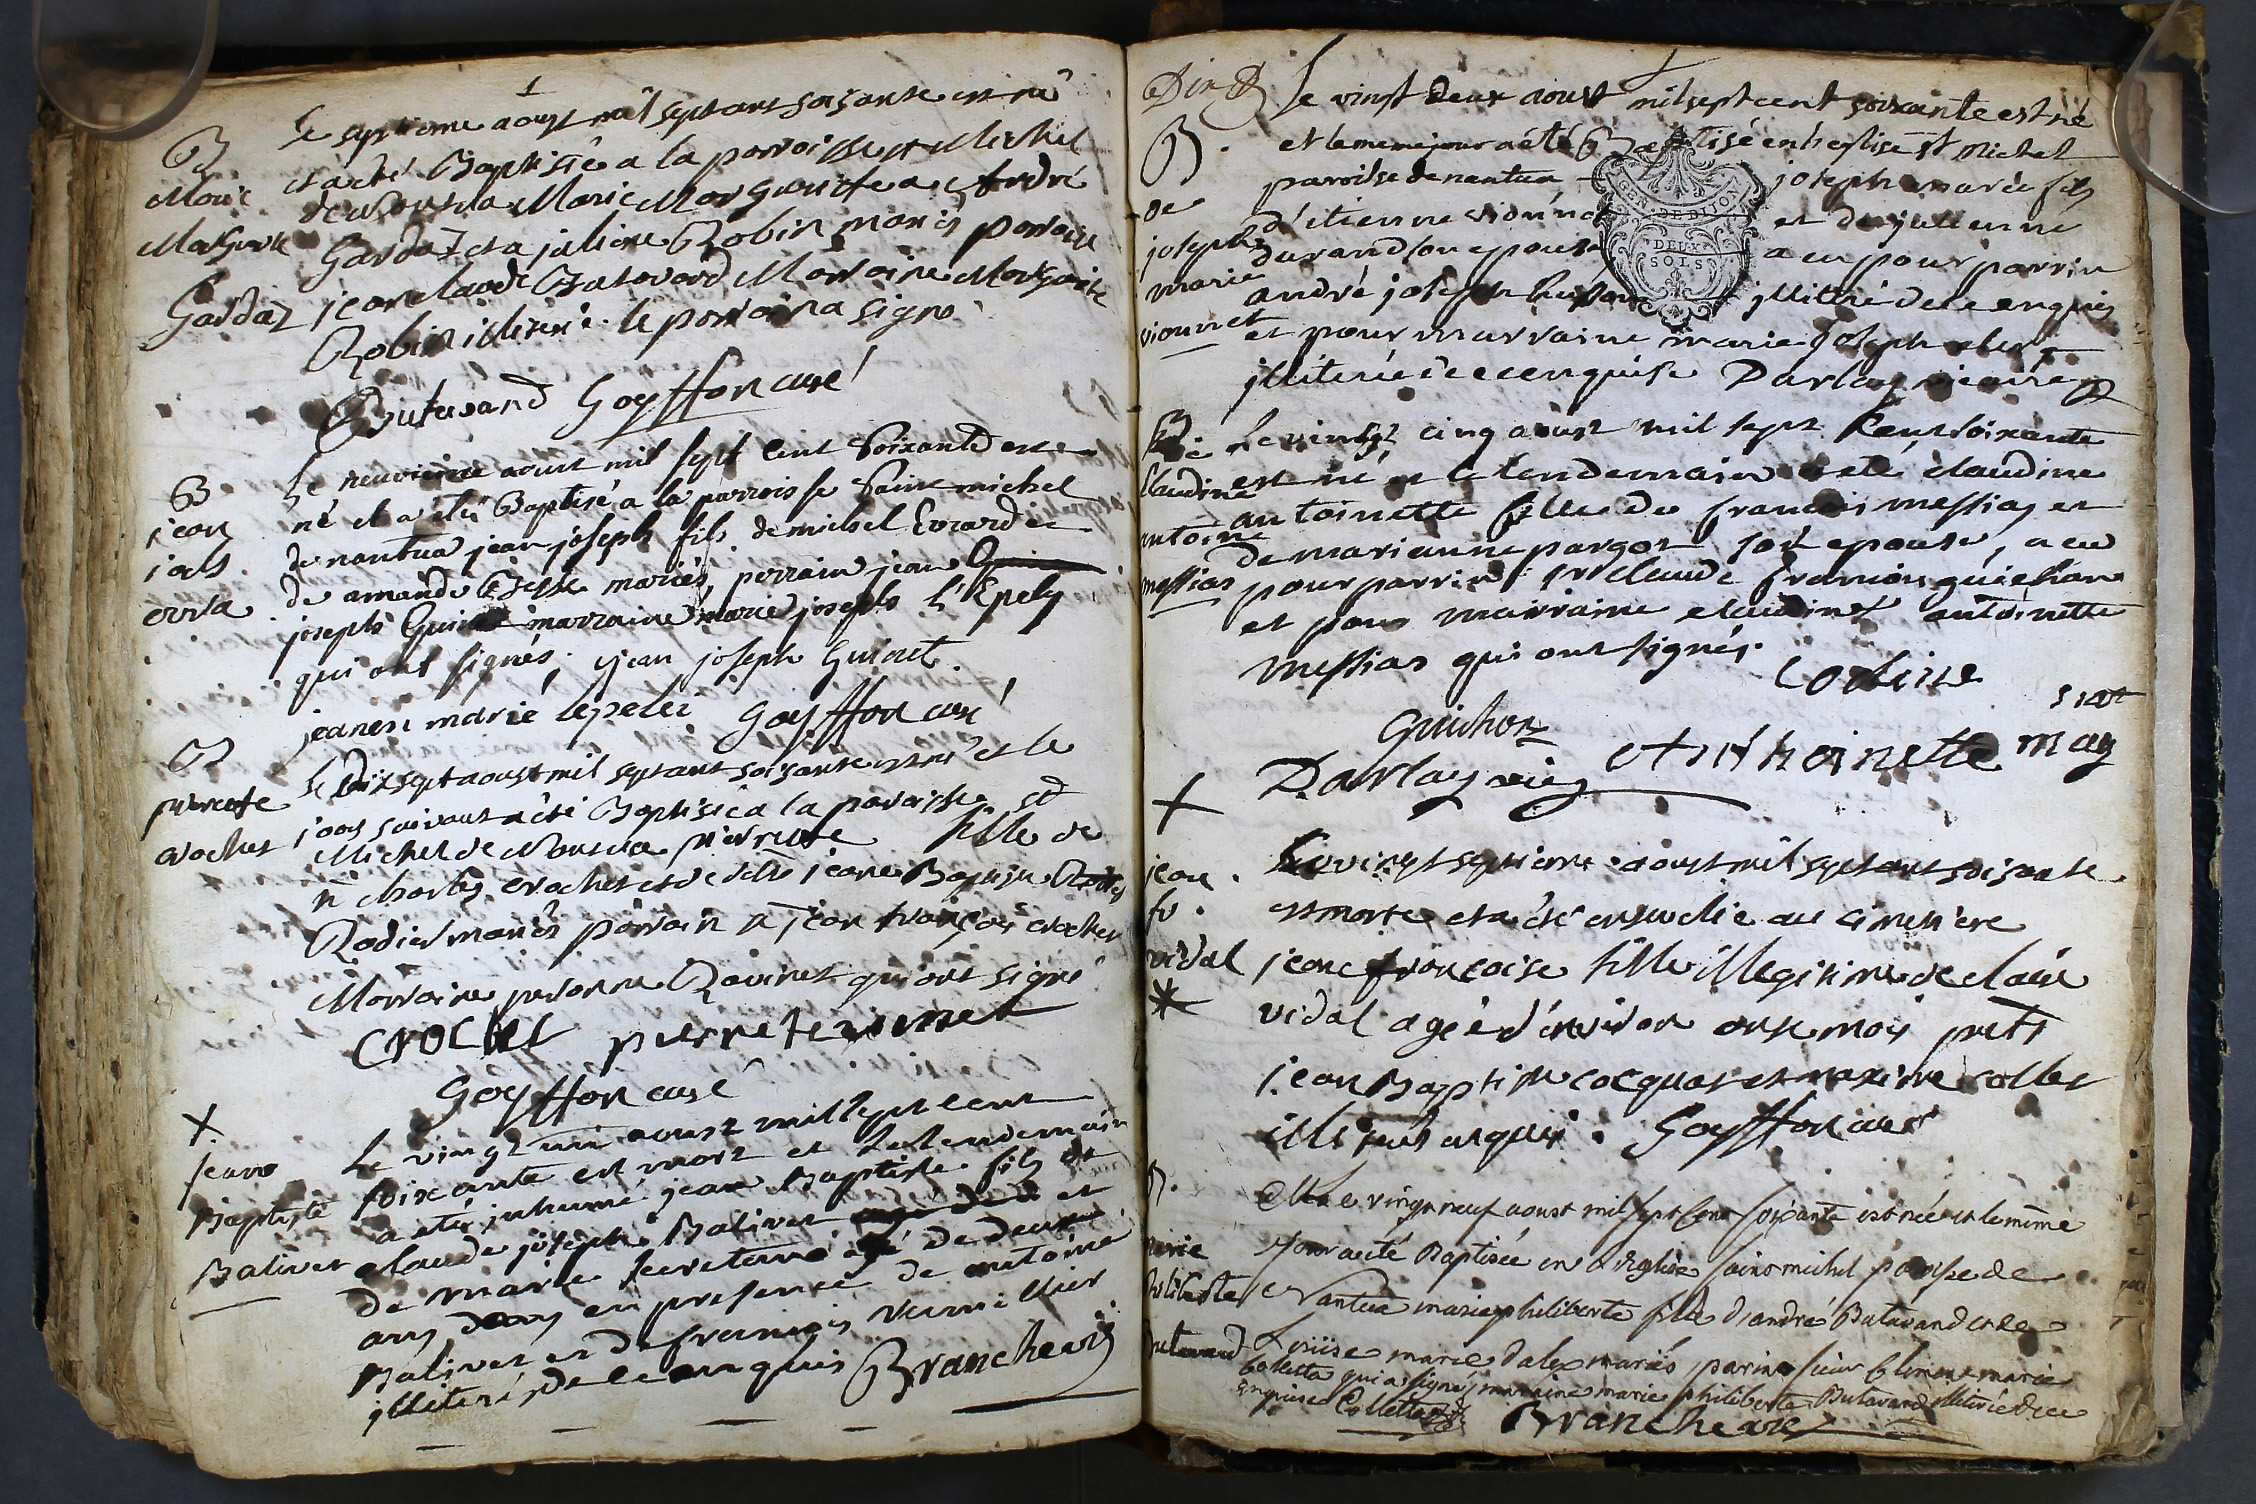 B
Marie
Margerite
Gardaz
Le septieme aoust mil sept cent soisante est né
et a été Baptisée a la parroisse st Michel
de Nantua Marie Margueritte a André
Gardaz et a juliene Robin mariés parrain
jean claude Butavand Marraine Margueritte
Robin illiterée le parrain a signé
Butavand Goyffon curé
B
jean
jos
Le neuvieme aoust mil sept cent soixante est
né et a été Baptisé a la parroisse saint michel
de nantua jean joseph fils de michel Evrard et
de amande mariés, perrain jean
joseph Guinet marraine marie joseph l'Epely
qui ont signés. jean joseph Guinet.
marie lepelei Goyffon curé
B
pierrette
crochet
Le dix sept aoust mil sept cent soisante est né et le
jour suivant a été Baptisée a la paroisse st
Michel de Nantua pierrette fille de
sr charles crochet et de jeane Baptiste
Rodier mariés parrain sr jean françois crochet
Marraine Ravinet qui ont signé
crochet
Goyffon curé
+
jean
Baptiste
Balivet
Le vingt un aoust mil sept cent
soixante est mort et le lendemain
a eté inhumé jean Baptiste fils de
claude joseph Balivet et
de marie secretant agé de deux
ans en presence de antoine
Balivet et de françois
illiterés de ce enquis Brancheard
B.
de
joseph
marie
vionnet
Le vingt deux aoust mil sept cent soixante est né
et le meme jour a été Baptisé en l'eglise st Michel
paroisse de nantua joseph marie fils
d'étienne vionnet et de julienne
durand son epouse a eu pour parrin
andré joseph illitéré de ce enquis
et pour marraine marie joseph
illiterée de ce enquise Darlay vicaire
GEN. DE DIJON
DEUX
SOLS
B
claudine
antoine
messias
Le vingt cinq aoust mil sept cent soixante
est né et le lendemain a eté claudine
antoinette fille de francois messias et
de marianne pargot son epouse, a eu
pour parrin sr claude francois guichon
et pour marraine claudine antoinette
messias qui ont signés.
Guichon
Darlay vic Anthoinette
+
jean
fr
vidal
Le vingt septieme aoust mil sept cent soisante
est morte et a été ensevelie au cimetiere
jeane françoise fille illegitime de claire
vidal agée d'environ onse mois prets
jean Baptiste cocquat et maxime collet
illiterés enquis. Goyffon curé
B.
Marie
Philiberte
Butavand
Le vingt neuf aoust mil sept cent soixante est née et le même
jour a eté Baptisée en l'Eglise saint michel paroisse de
Nantua marie philiberte fille d'andré Butavand et de
Louise marie dalex mariés parin sieur Climent marie
Colletta qui a signé, maraine marie philiberte Butavand illiterée de ce
enquise Colletta
Brancheard